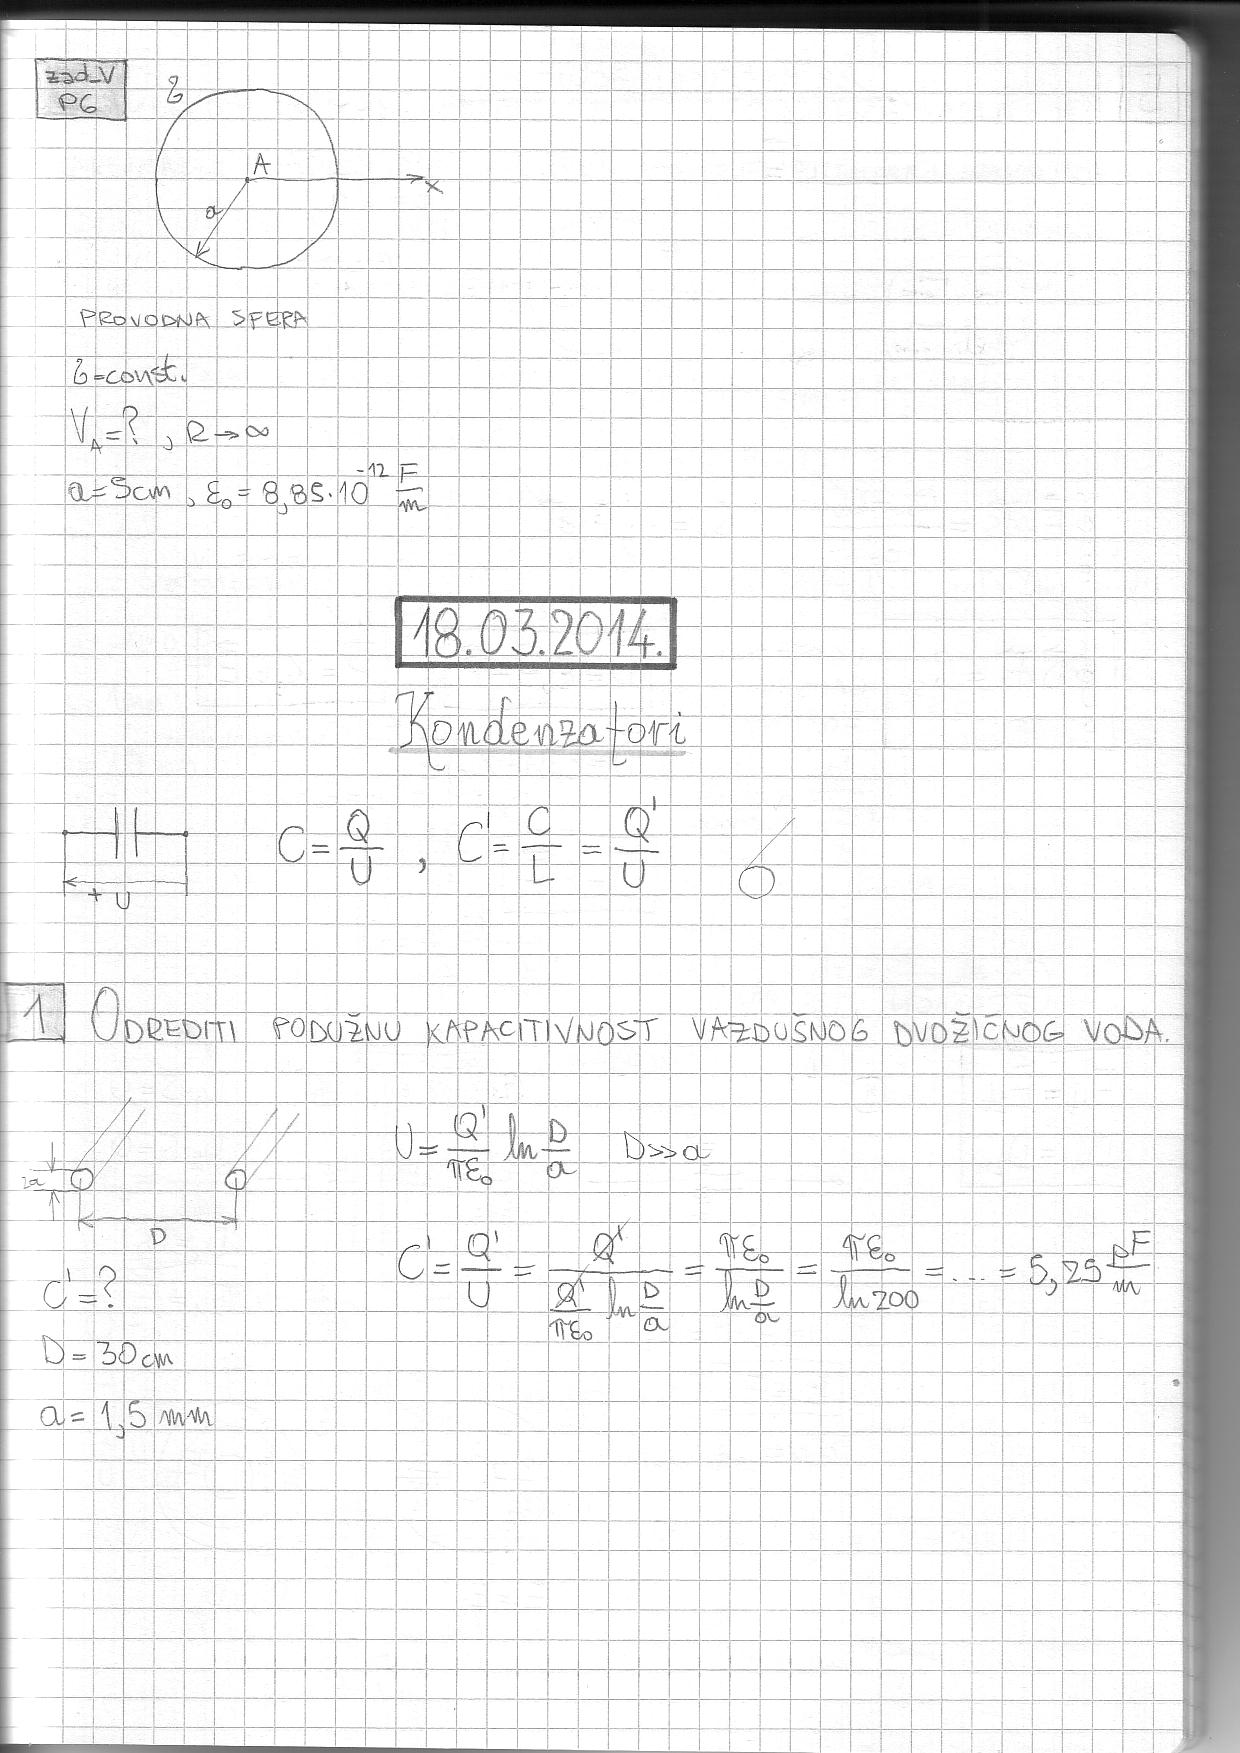 zad_V
P6
A
a
x
PROVODNA SFERA
=const.
V_A=? , R→∞
a=5cm , ε₀=8,85·10⁻¹² F/m
18.03.2014.
Kondenzatori
C=Q/U , C'=C/L=Q'/U
+ U
1. ODREDITI PODUŽNU KAPACITIVNOST VAZDUŠNOG DVOŽIČNOG VODA.
U=Q'/(πε₀) ln D/a D>>a
2a
D
C'=Q'/U=Q'/(Q'/(πε₀) ln D/a)=πε₀/(ln D/a)=πε₀/(ln200)=...=5,25 pF/m
C'=?
D=30cm
a=1,5 mm